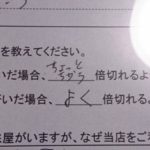 を教えてください。
いだ場合、ちょっとちがう倍切れるよ
いだ場合、よく倍切れるよ
産屋がいますが、なぜ当店をご